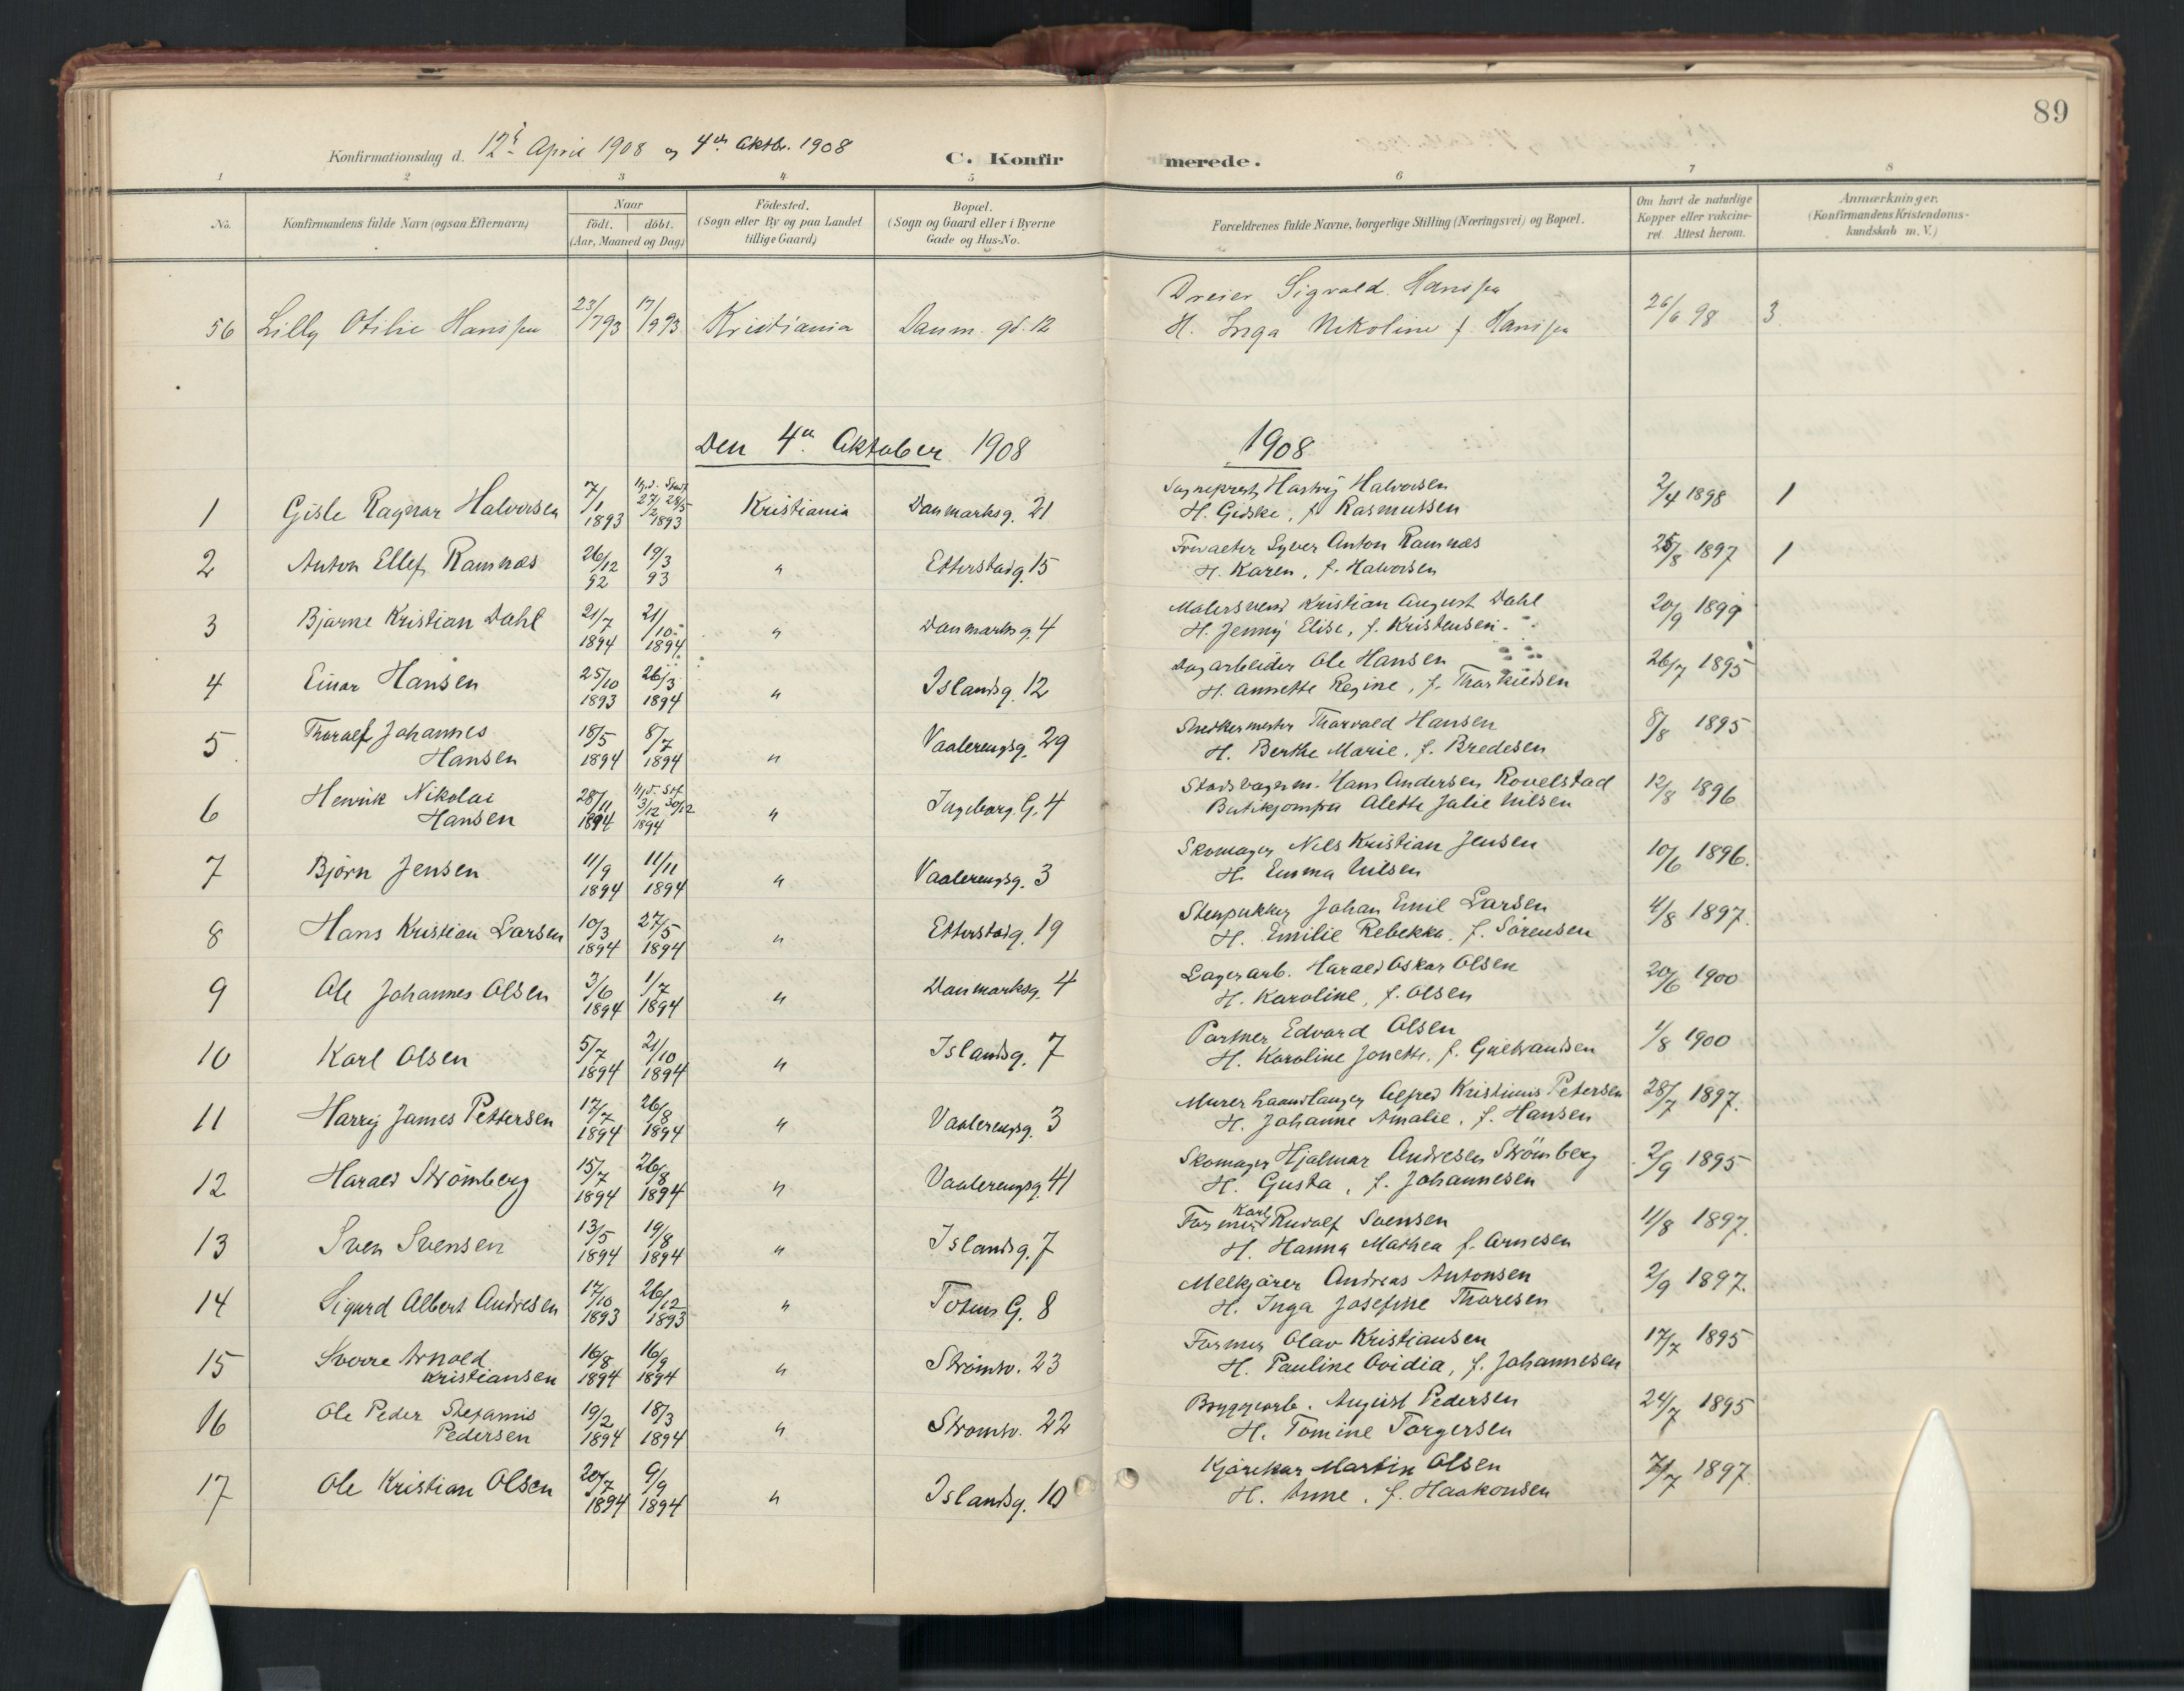 89
Konfirmationsdag d. 12te April 1908 og 4de Oktbr. 1908 C. Konfirmerede.
1 2 3 4 5 6 7 8
No. Konfirmandens fulde Navn (ogsaa Efternavn) Naar födt. döbt. (Aar, Maaned og Dag) Födested. (Sogn eller By og paa Landet tillige Gaard) Bopæl. (Sogn og Gaard eller i Byerne Gade og Hus-No. Forældrenes fulde Navne, borgerlige Stilling (Næringsvei) og Bopæl. Om havt de naturlige Kopper eller vakcineret. Attest herom. Anmærkninger. (Konfirmandens Kristendomskundskab m. V.)
Dreier Sigvald Hanssen
56 Lilly Otilie Hanssen 23/7 93 17/9 93 Kristiania Danm. gd. 12 H. Inga Nikoline f. Hanssen 26/6 98 3
Den 4de Oktober 1908 1908
1 Gisle Ragnar Halvorsen 7/1 1893 1893 Kristiania Danmarksg. 21 Sogneprest Hastvig Halvorsen
H. Gidske, f. Rasmussen 2/4 1898 1
2 Anton Ellef Ramnæs 26/12 92 19/3 93 " Etterstadg. 15 Sylver Anton Ramnæs
H. Karen, f. Halvorsen 25/8 1897 1
3 Bjarne Kristian Dahl 21/7 1894 21/10 1894 " Danmarksg. 4 Malersvend Kristian August Dahl
H. Jenny Elise, f. Kristensen 20/9 1899
4 Einar Hansen 25/10 1893 26/3 1894 " Islandsg. 12 Dagarbeider Ole Hansen
H. Annette Regine, f. Thorkildsen 26/7 1895
5 Thoralf Johannes Hansen 18/5 1894 8/7 1894 " Vaalerengsg. 29 Snedkermester Thorvald Hansen
H. Berthe Marie, f. Bredesen 8/8 1895
6 Henrik Nikolai Hansen 28/11 1894 3/12 30/12 1894 " Ingeborg. G. 4 Hans Andersen Rovelstad
Butikjomfru Alette Julie Nilsen 12/8 1896
7 Bjørn Jensen 11/9 1894 11/11 1894 " Vaalerengsg. 3 Skomager Nils Kristian Jensen
H. Emma Nilsen 10/6 1896.
8 Hans Kristian Larsen 10/3 1894 27/5 1894 " Etterstadg. 19 Stenpukker Johan Emil Larsen
H. Emilie Rebekka. f. Sørensen 4/8 1897.
9 Ole Johannes Olsen 3/6 1894 1/7 1894 " Danmarksg. 4 Lagerarb. Harald Oskar Olsen
H. Karoline, f. Olsen 20/6 1900
10 Karl Olsen 5/7 1894 21/10 1894 " Islandsg. 7 Portner Edvard Olsen
H. Karoline Jonette, f. 1/8 1900
11 Harry James Pettersen 17/7 1894 26/8 1894 " Vaalerengsg. 3 Murerhaandlanger Alfred Kristinius Petersen
H. Johanne Amalie, f. Hansen 28/7 1897.
12 Harald Strømberg 15/7 1894 26/8 1894 " Vaalerengsg. 41 Skomager Hjalmar Andresen Strömberg
H. Gusta, f. Johannesen 2/9 1895
13 Sven Svensen 13/5 1894 19/8 1894 " Islandsg. 7 Former Karl Rudolf Svensen
H. Hanna Mathea f. Arnesen 11/8 1897.
14 Sigurd Albert Andresen 17/10 1893 26/12 1893 " Totens G. 8 Melkjører Andreas Antonsen
H. Inga Josefine Thoresen 2/9 1897.
15 Sverre Arnold Kristiansen 16/8 1894 16/9 1894 " Strømsv. 23 Former Olav Kristiansen
H. Pauline Ovidia, f. Johannesen 17/7 1895
16 Ole Peder Stefanus Pedersen 19/2 1894 18/3 1894 " Strømsv. 22 Bryggearb. August Pedersen
H. Tomine Torgersen 24/7 1895
17 Ole Kristian Olsen 20/7 1894 9/9 1894 " Islandsg. 10 Kjørekar Martin Olsen
H. Anne, f. Haakonsen 1897.